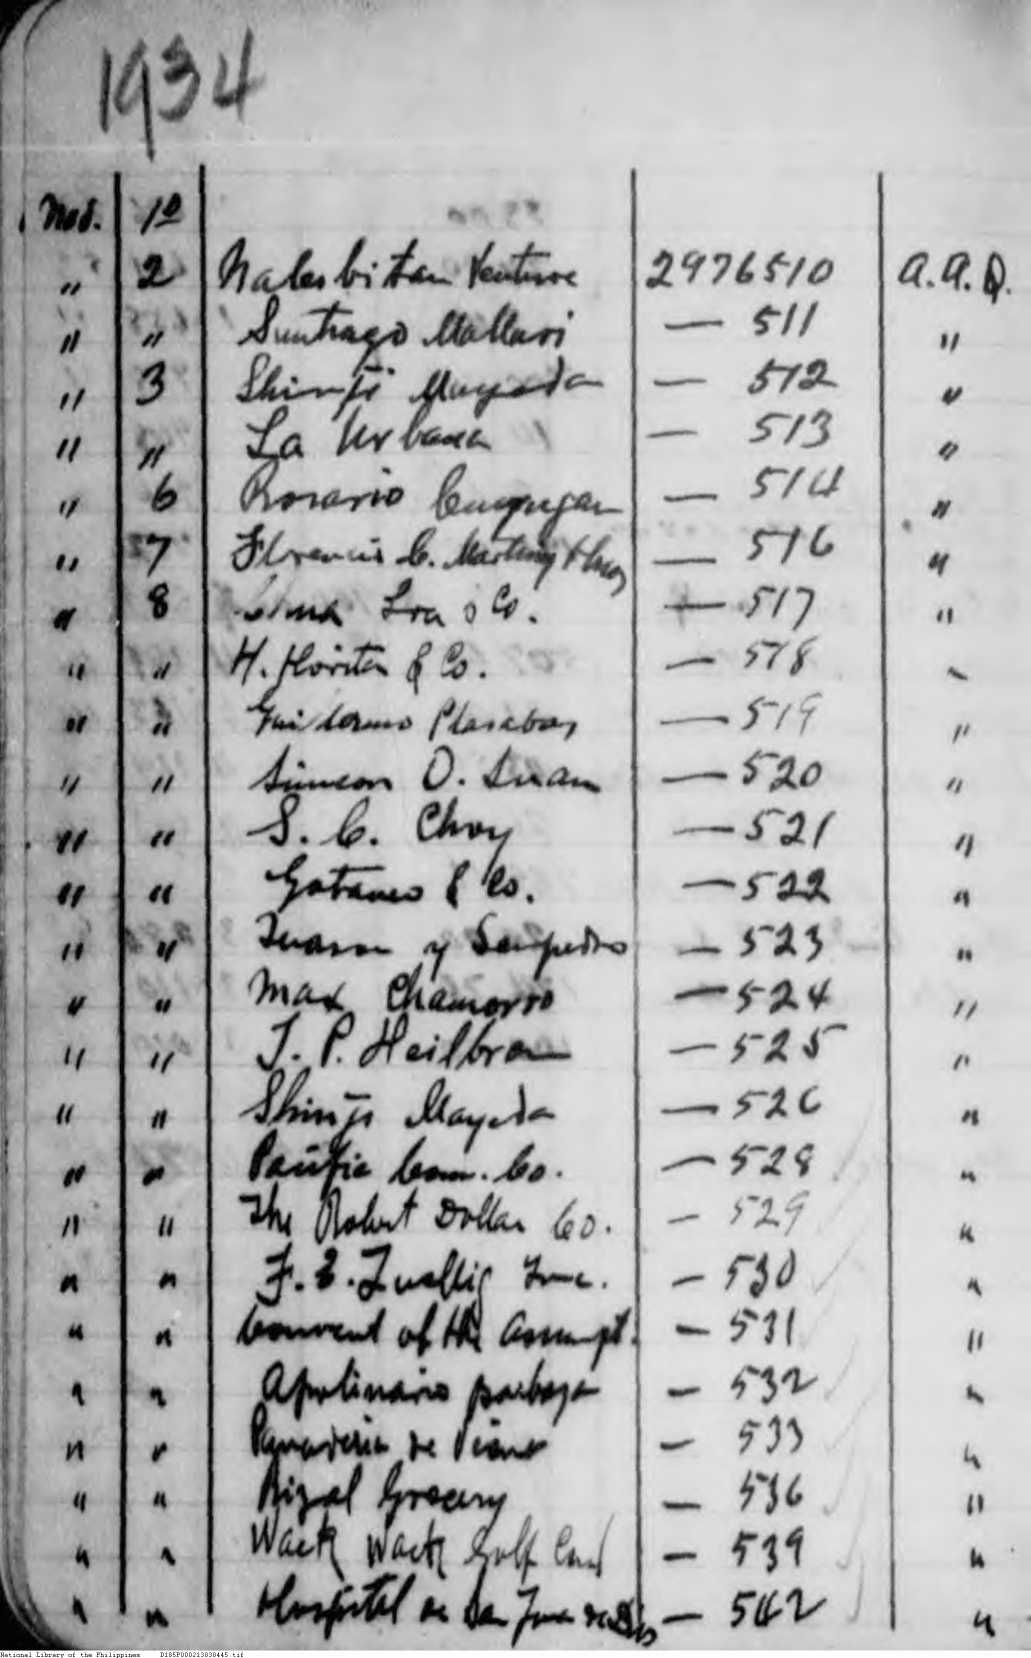 1934
Nov. 10
" 2 Nalesbitan Venture 2976510 A.A.D.
" " Santiago Mallari — 511 "
" 3 Shinji Mayeda — 512 "
" " La Urbana — 513 "
" 6 Rosario — 514 "
" 7 Florencio C. — 516 "
" 8 & Co. — 517 "
" " H. & Co. — 518 "
" " Guillermo — 519 "
" " Simeon O. — 520 "
" " S. C. Choy — 521 "
" " Gotauco & Co. — 522 "
" " Tuason y Sampedro — 523 "
" " Max Chamorro — 524 "
" " J. P. Heilbron — 525 "
" " Shinji Mayeda — 526 "
" " Pacific Com. Co. — 528 "
" " The Robert Dollar Co. — 529 "
" " F. E. Zuellig Inc. — 530 "
" " Convent of the Assumpt. — 531 "
" " Apolinario — 532 "
" " Panaderia de — 533 "
" " Rizal Grocery — 536 "
" " Wack Wack Golf — 539 "
" " Hospital de San Juan de Dios — 542 "
National Library of the Philippines D185P000213838445.tif